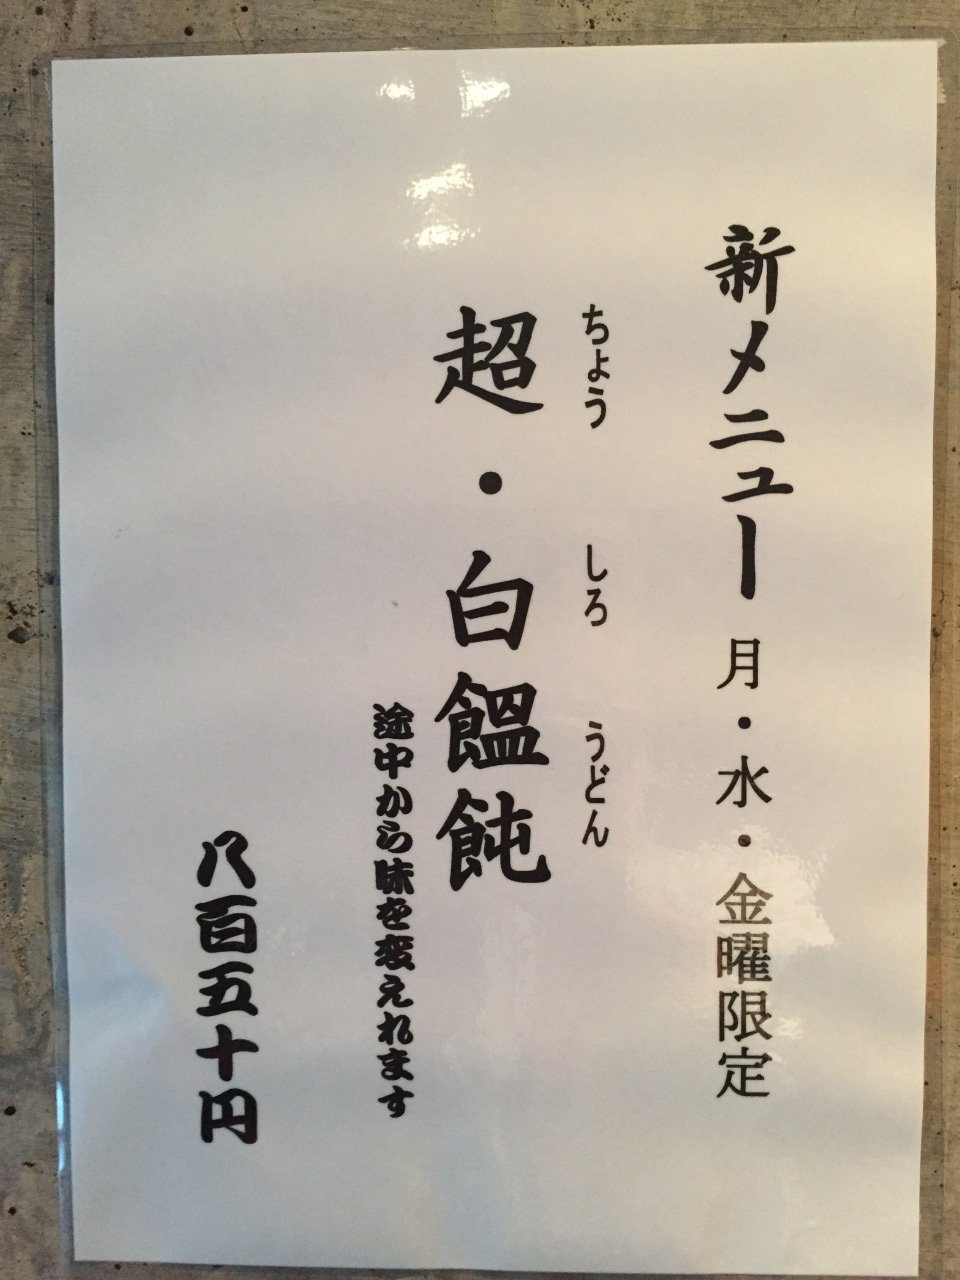 新メニュー 月・水・金曜限定
ちょう しろ うどん
超・白饂飩
途中から味を変えれます
八百五十円